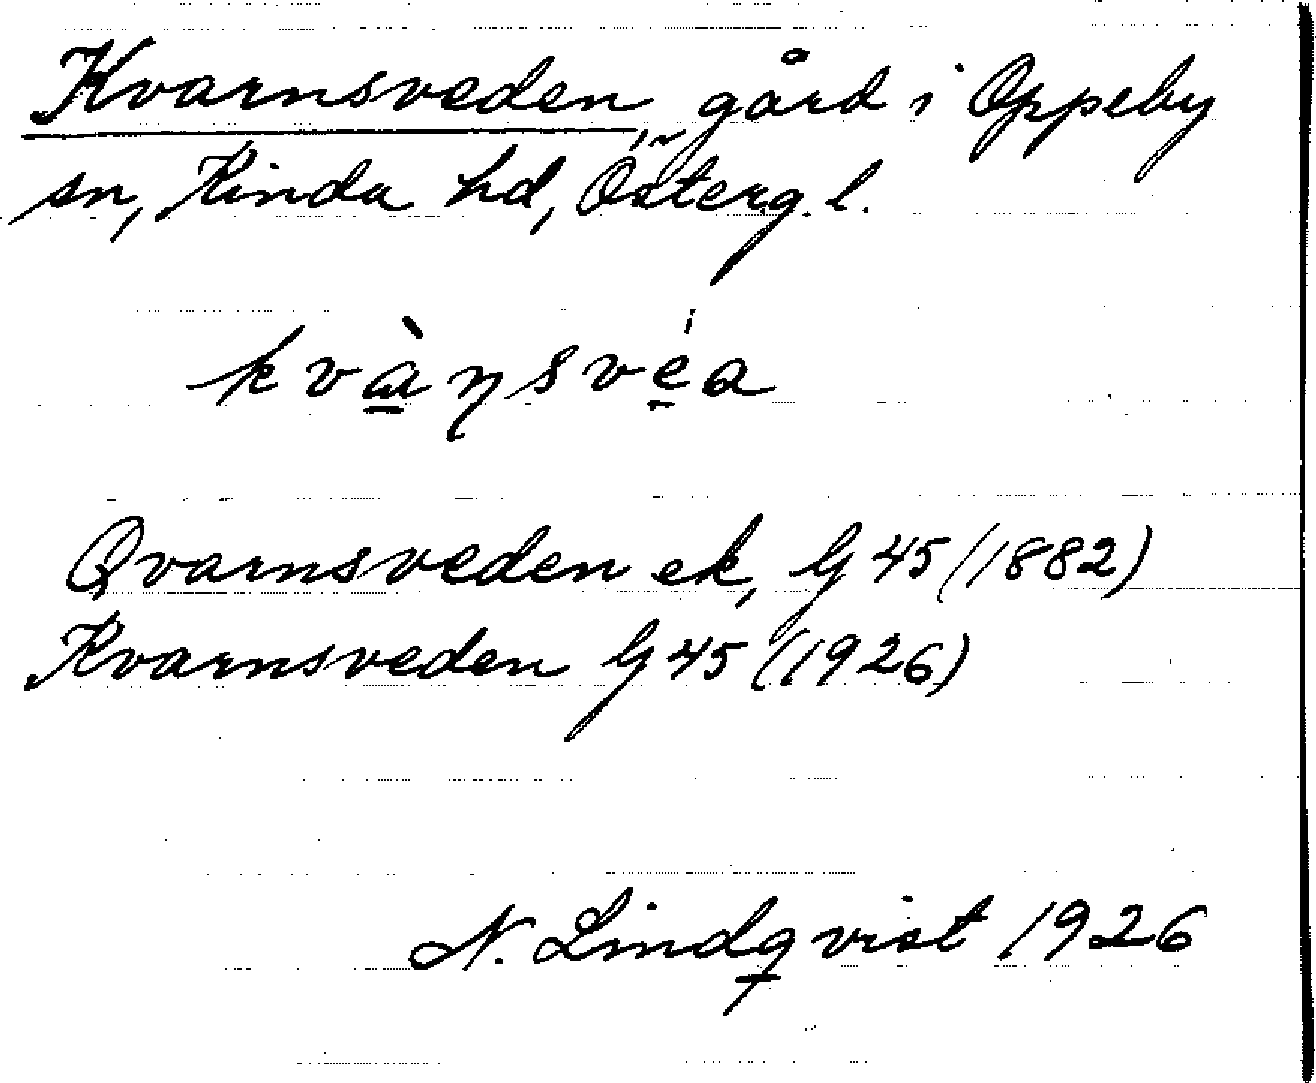 Kvarnsveden, gård i Oppeby
sn, Kinda hd, Österg. l.
kvà̲ŋsvé̲a
Qvarnsveden ek, G 45 (1882)
Kvarnsveden G 45 (1926)
N. Lindqvist 1926